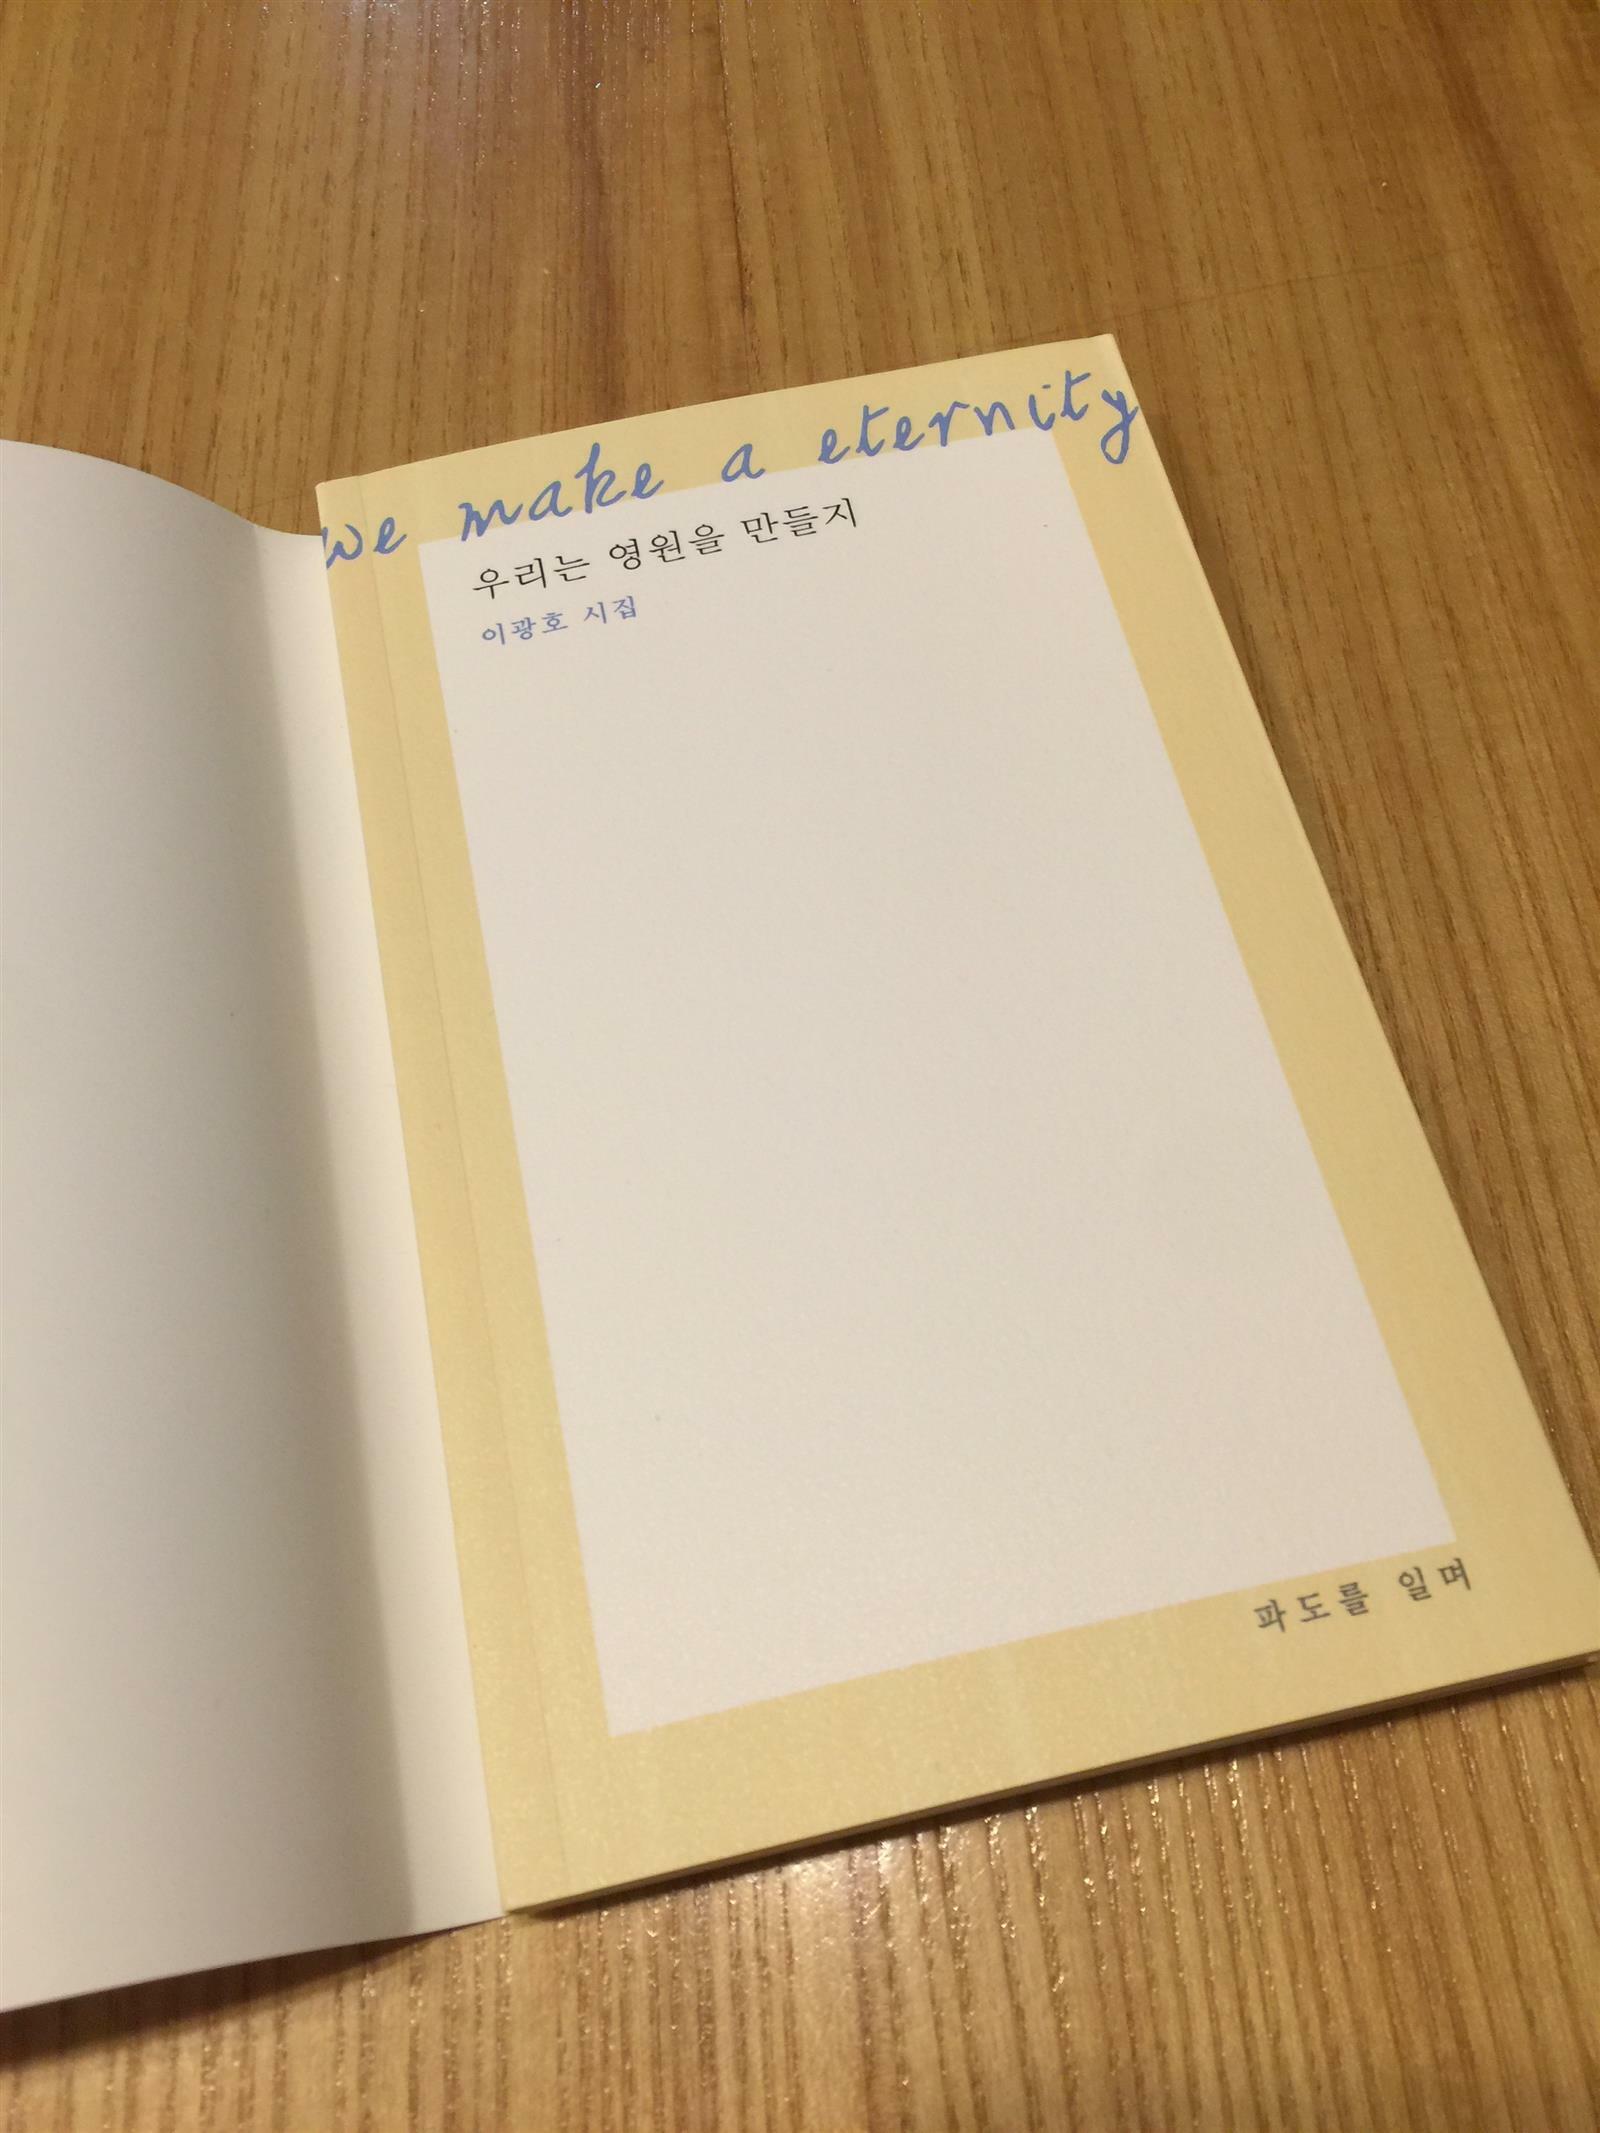 we make a eternity
우리는 영원을 만들지
이광호 시집
파도를 일며